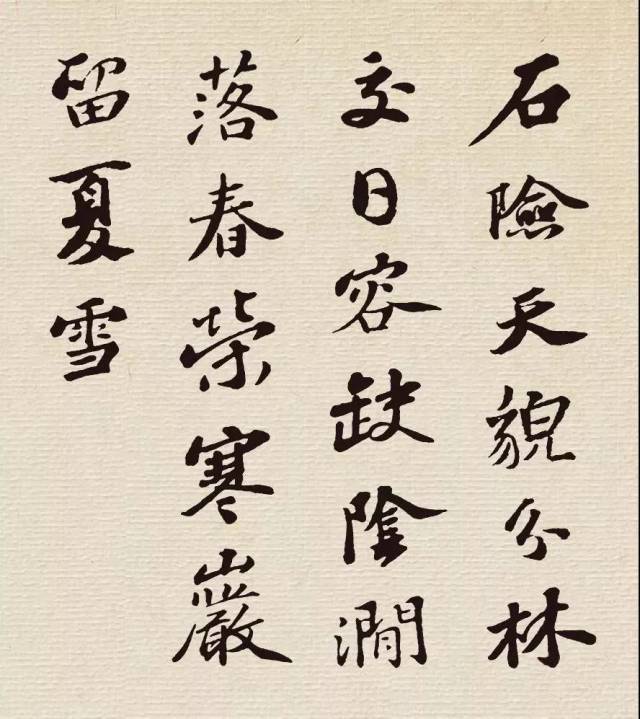 石險天貌分林
交日容缺陰澗
落春榮寒巖
留夏雪